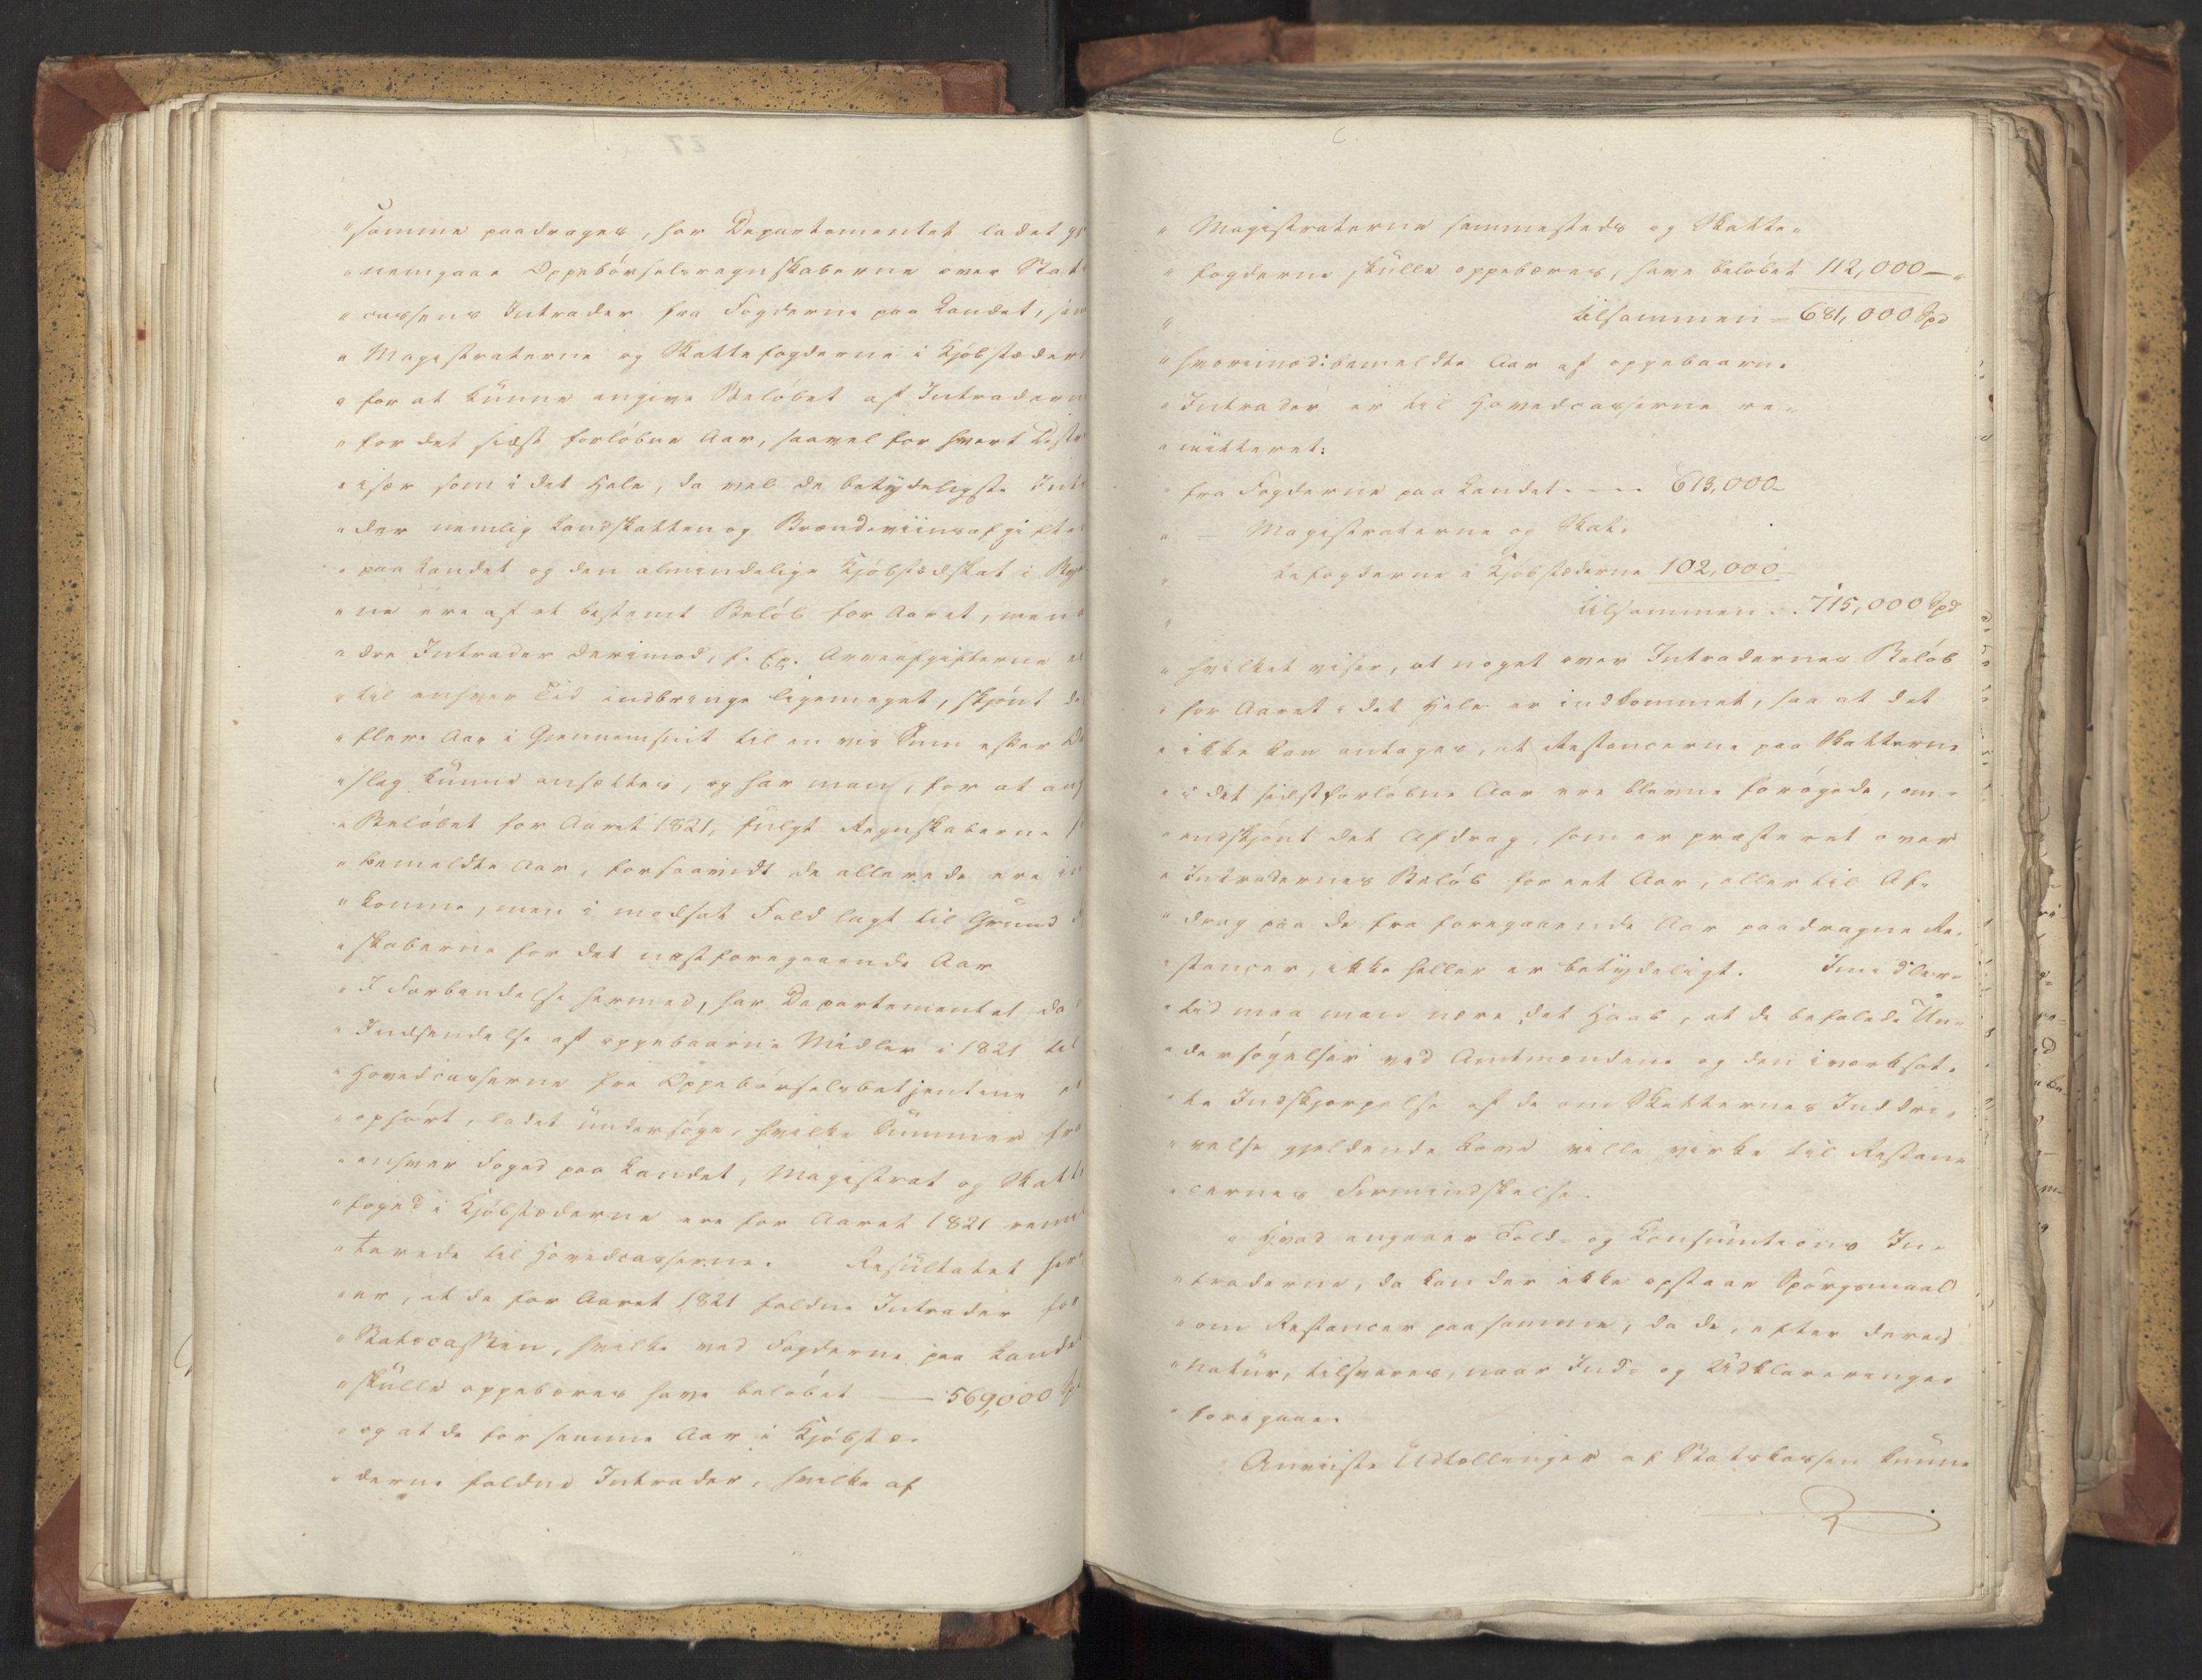 "samme paadrages, har Departementet ladet gi
"nemgaae Oppebörselsregnskaberne over Stat
"cassens Intrader fra Fogderne paa Landet, sam
"Magistraterne og Skattefogderne i Kjöbstæder
"for at kunne angive Belöbet af Intraderne
"for det sidst forlöbne Aar, saavel for hvert Distr
"især som i det Hele, da vel de betydeligste Int
"der nemlig Landskatten og Brændeviinsafgifte
"paa Landet og den almindelige Kjöbstædskat i
"ne ere af et bestemt Belöb for Aaret, men
"dre Intrader derimod, f. Ex. Arveafgifterne ei
"til enhver Tid indbringe ligemeget, skjönt de
"flere Aar i Giennemsnit til en vis Sum efter
"slag kunne ansættes, og har man, for at ang
"Belöbet for Aaret 1821, fulgt Regnskaberne f
"bemeldte Aar, forsaavidt de allerede ere in
"komne, men i modsat Fald lagt til Grund
"skaberne for det næstforegaaende Aar
"I Forbindelse hermed, har Departementet, da
"Indsendelse af oppebaarne Midler i 1821 til
"Hovedcasserne fra Oppebörselsbetjentene er
"ophört, ladet undersöge, hvilke Summer fra
"enhver Foged paa Landet, Magistrat og Skatte
"foged i Kjöbstæderne ere for Aaret 1821 remit
"terede til Hovedcasserne. Resultatet her
"er, at de for Aaret 1821 faldne Intrader for
"Statscassen, hvilke ved Fogderne paa Landet
"skulle oppebæres have belöbet — 569,000 Spd
"og at de for samme Aar i Kjöbstæ-
"derne faldne Intrader, hvilke af
"Magistraterne sammesteds og Skatte-
"fogderne skulle oppebæres, have belöbet 112,000 —"
" tilsammen = 681,000 Spd
"hvorimod i bemeldte Aar af oppebaarne
"Intrader er til Hovedcasserne re-
"mitteret:
"fra Fogderne paa Landet - - - 613,000 -
" — Magistraterne og Skat-
" tefogderne i Kjöbstæderne 102,000 -
" tilsammen . . 715,000 Spd
"hvilket viser, at noget over Intradernes Belöb
"for Aaret i det Hele er indkommet, saa at det
"ikke kan antages, at Restancerne paa Skatterne
"i det sidstforlöbne Aar ere blevne forögede, om-
"endskjönt det Afdrag, som er præsteret over
"Intradernes Belöb for eet Aar, eller til Af-
"drag paa de fra foregaaende Aar paadragne Re-
"stancer, ikke heller er betydeligt. Imidler-
"tid maa man nære det Haab, at de befalede Un-
"dersögelser ved Amtmændene og den iværksat-
"te Indskjærpelse af de om Skatternes Inddri-
"velse gjældende Love ville virke til Restan-
"cernes Formindskelse.
"Hvad angaaer Told- og Consumtions In-
"traderne, da kan der ikke opstaae Spörgsmaal
"om Restancer paa samme, da de, efter deres
"Natur, tilsvares, naar Ind- og Udklareringer
"foregaae.
Anviiste Udtællinger af Statskassen kunne